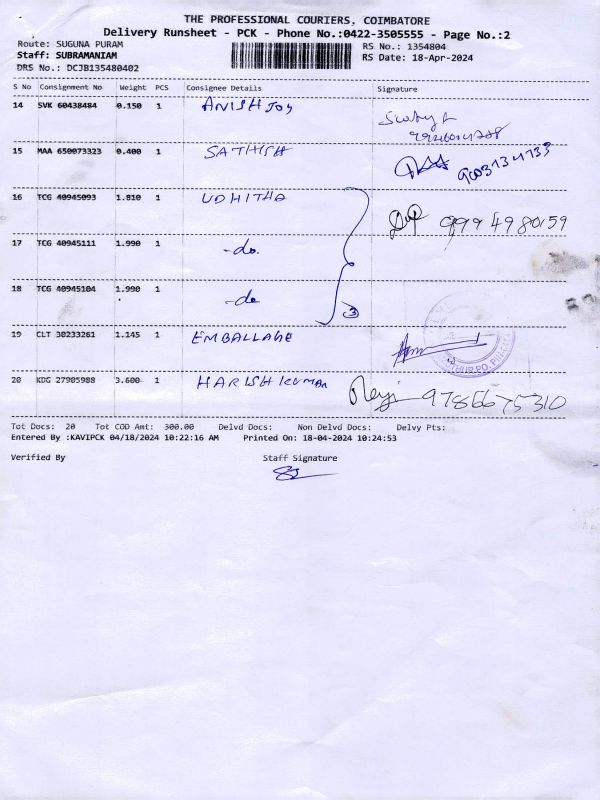 THE PROFESSIONAL COURIERS, COIMBATORE
Delivery Runsheet - PCK - Phone No.:0422-3505555 - Page No.:2
Route: SUGUNA PURAM
RS No.: 1354804
Staff: SUBRAMANIAM
RS Date: 18-Apr-2024
DRS No.: DCJB135480402
S No Consignment No Weight PCS Consignee Details Signature
14 SVK 60438484 0.150 1 ANISH JOY
15 MAA 650073323 0.400 1 SATHISH
16 TCG 40945093 1.810 1 UDHITHA 9994980159
17 TCG 40945111 1.990 1 -do.
18 TCG 40945104 1.990 1 -do
3
19 CLT 30233261 1.145 1 EMBALLAGE
20 KDG 27905988 3.600 1 HARISH KUMAR 9786675310
Tot Docs: 20 Tot COD Amt: 300.00 Delvd Docs: Non Delvd Docs: Delvy Pts:
Entered By :KAVIPCK 04/18/2024 10:22:16 AM Printed On: 18-04-2024 10:24:53
Verified By Staff Signature